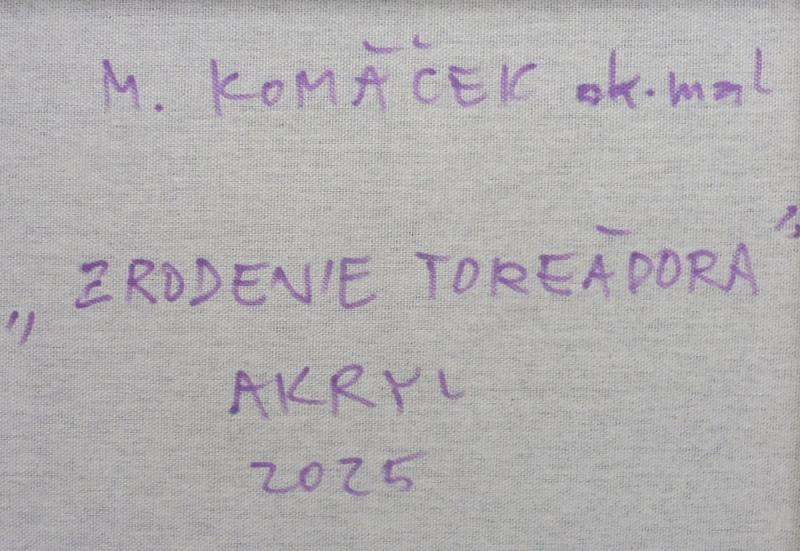 M. KOMÁČEK ak.mal
„ZRODENIE TOREÁDORA”
AKRYL
2025